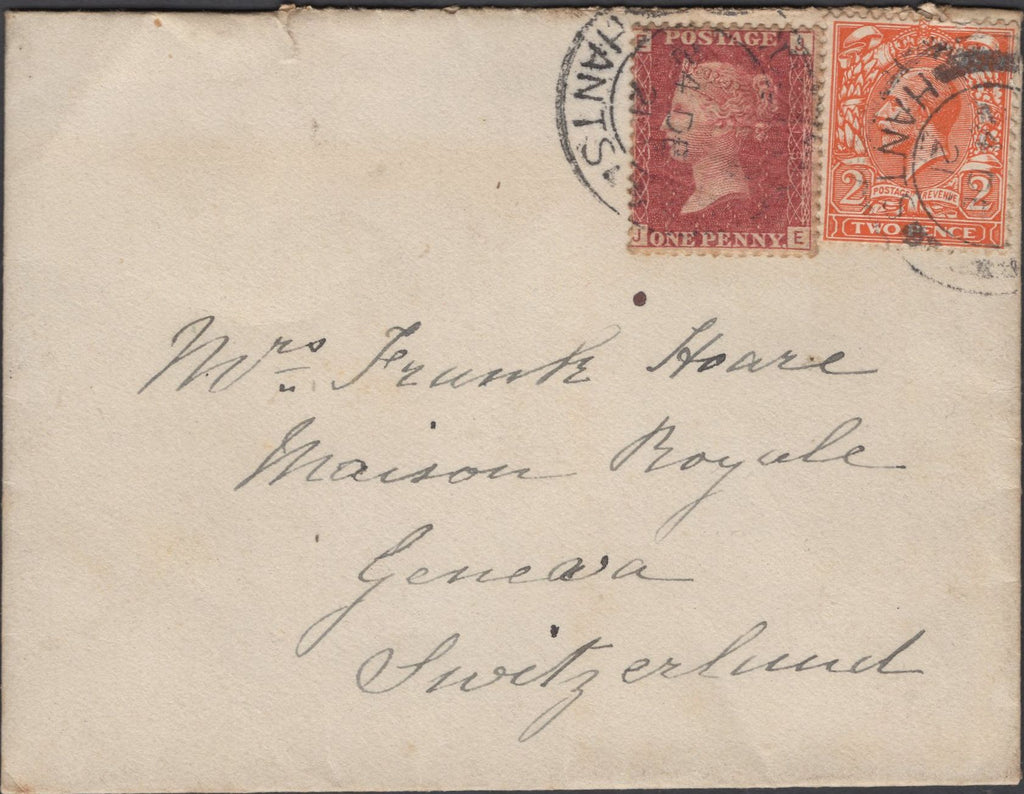 POSTAGE
ONE PENNY.
J E
2 POSTAGE REVENUE 2
TWO PENCE
HANTS
HANTS
Mrs Frank Hoare
Maison Royale
Geneva
Switzerland